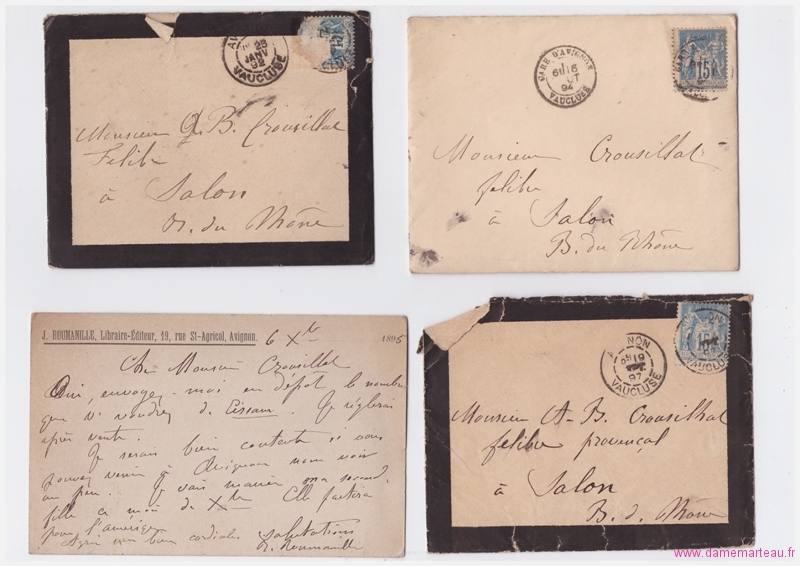 AV
28
JANV
92
VAUCLUSE
15
Monsieur A. B. Crousillat
Felibre
à Salon
B. du Rhône
GARE D'AVIGNON
6E 15
OCT
94
VAUCLUSE
15
Monsieur Crousillat
felibre
à Salon
B. du Rhône
J. ROUMANILLE, Libraire-Éditeur, 19, rue St-Agricol, Avignon. 6 Xbre 1895
Cher Monsieur Crousillat
Oui, envoyez-moi en dépôt le nombre
que vs voudrez de Eissam. Je réglerai
après vente.
Je serais bien contente si vous
pouvez venir à Avignon nous voir
un peu. Je vais marier ma seconde
fille ce mois de Xbre Elle partira
pour l'amérique
Agréez mes bien cordiales salutations
R. Roumanille
AVIGNON
19
97
VAUCLUSE
15
Monsieur A-B. Crousillat
felibre provençal
à Salon
B. d. Rhône
www.damemarteau.fr